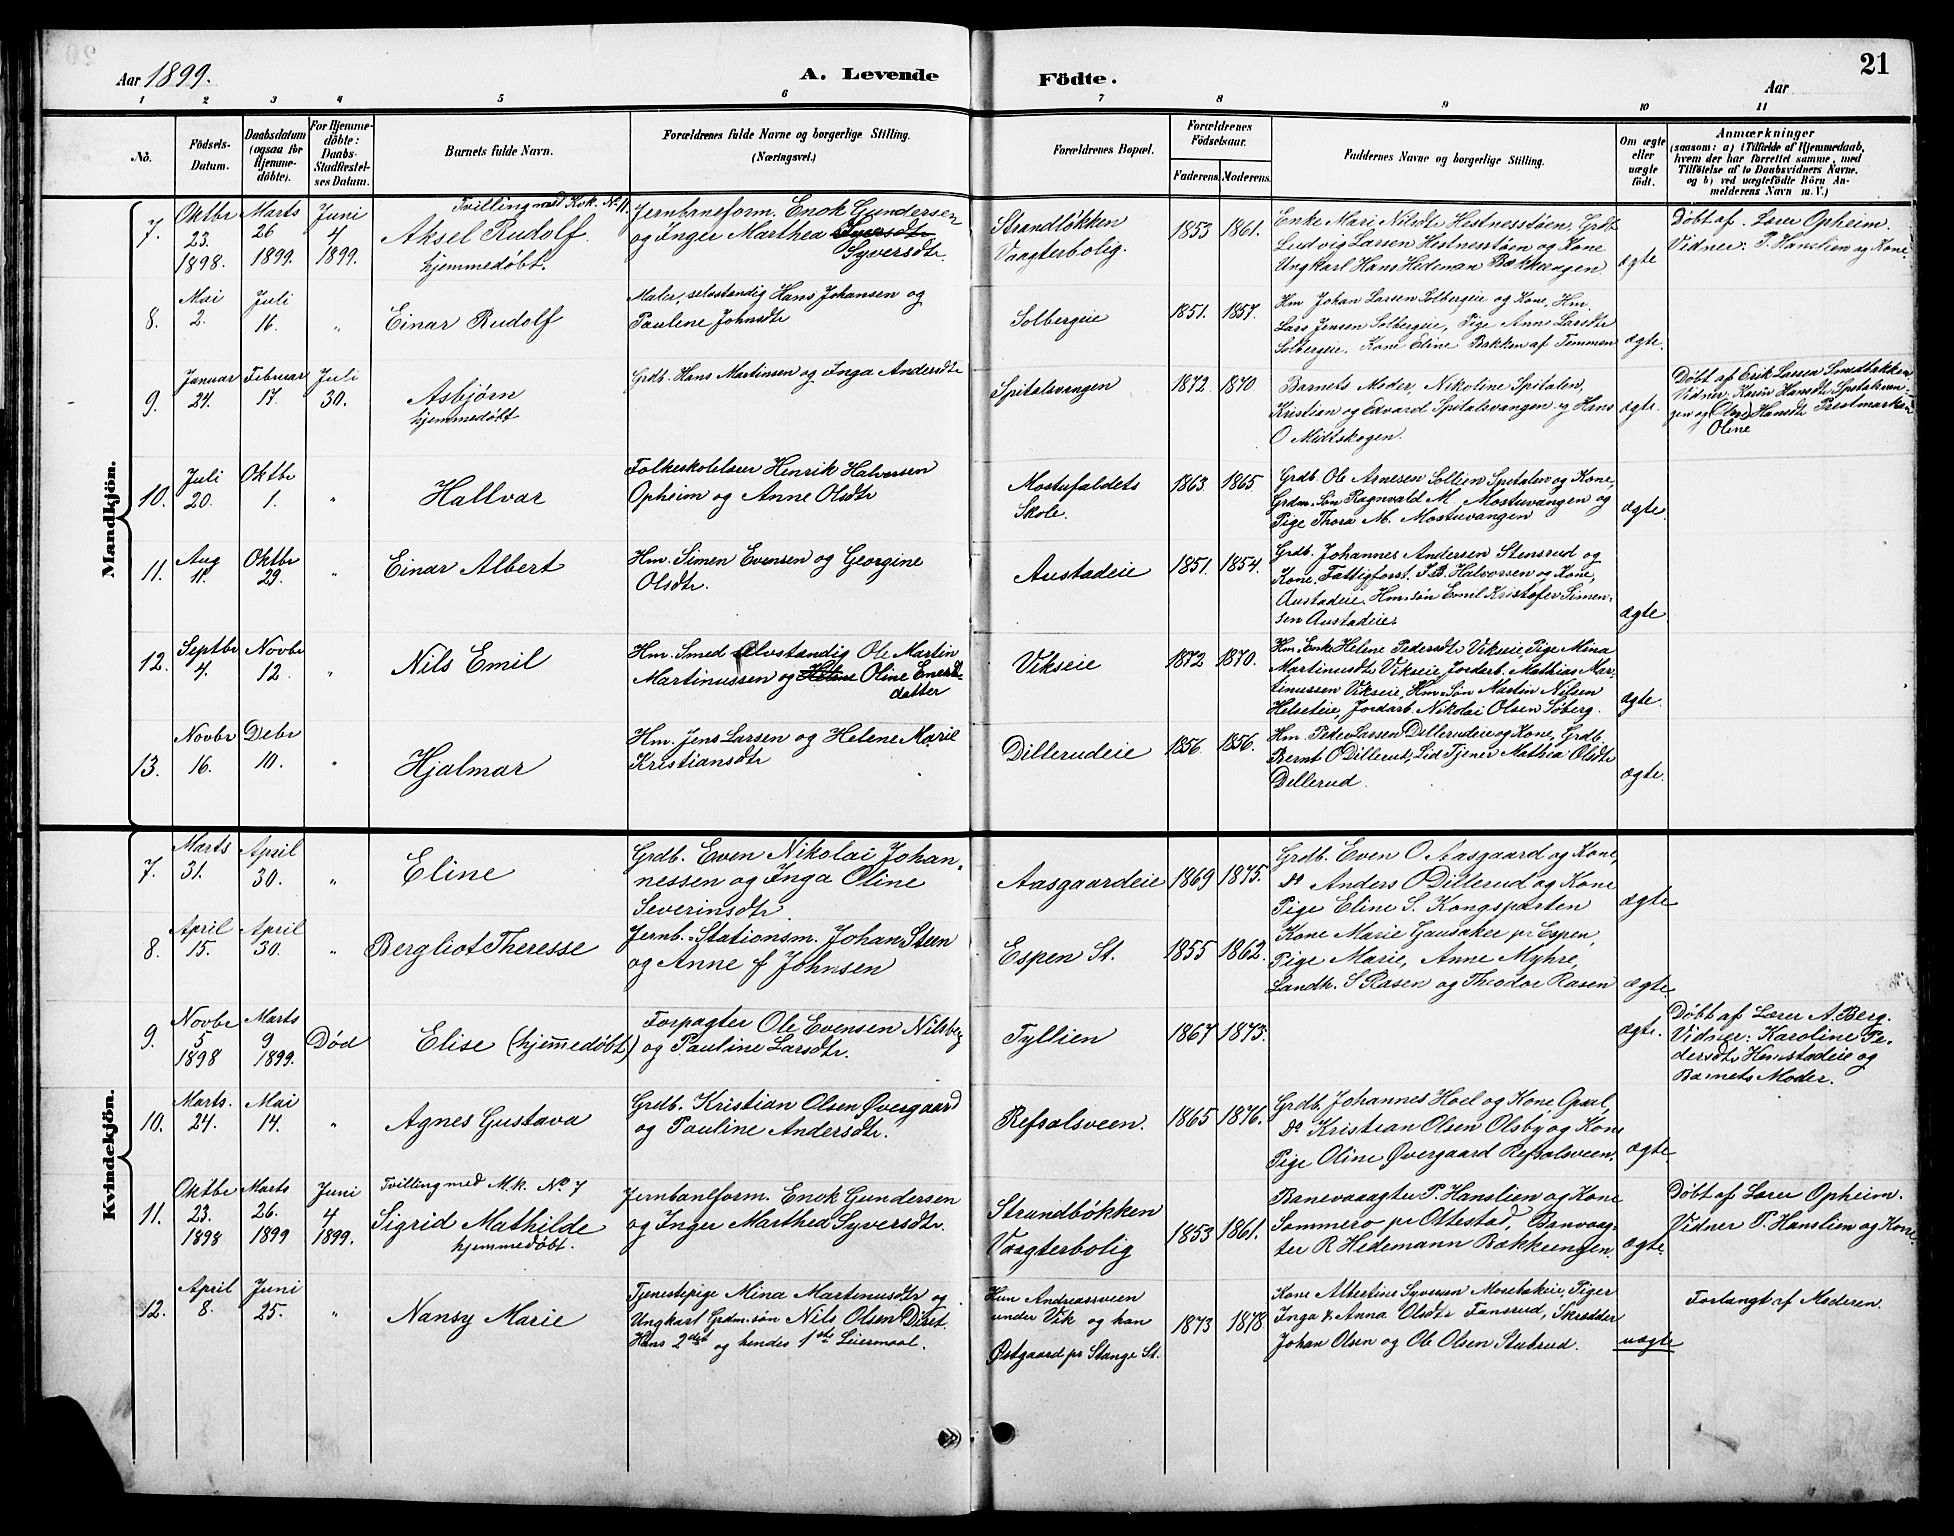 Aar 1899.
A. Levende
Födte.
Aar
21
1 2 3 4 5 6 7 8 9 10 11
No.
Födsels-
Datum.
Daabsdatum
(ogsaa for
Hjemme-
döbte).
For Hjemme-
döbte:
Daabs-
Stadfæstel-
ses Datum.
Barnets fulde Navn.
Forældrenes fulde Navne og borgerlige Stilling.
(Næringsvei.)
Forældrenes Bopæl.
Forældrenes
Födselsaar.
Faderens. Moderens.
Faddernes Navne og borgerlige Stilling.
Om ægte
eller
uægte
født.
Anmærkninger
(saasom: a) i Tilfælde af Hjemmedaab,
hvem der har forrettet samme, med
Tilföielse af to Daabsvidners Navne.
og b) ved uægtefödte Börn An-
melderens Navn m. V.)
Mandkjön.
7.
Oktbr
23.
1898.
Marts
26
1899.
Juni
4
1899.
Tvilling med Kvk. No 11.
Aksel Rudolf
hjemmedøbt.
Jernbaneform. Enok Gundersen
og Inger Marthea Syversdtr
Syversdtr.
Strandløkken
Vaagterbolig.
1853 1861.
Enke Mari Nilsdtr Hestnesstøen, Grdb.
Ludvig Larsen Hestnesstøen og Kone
Ungkarl Hans Hedeman Bækkevangen
ægte
Døbt af. Lærer Opheim.
Vidner: P. Hanslien og Kone.
8.
Mai
2.
Juli
16.
"
Einar Rudolf
Maler, selvstændig Hans Johansen og
Pauline Johnsdtr
Solbergeie
1851. 1857.
Hm Johan Larsen Solbergeie og Kone, Hm.
Lars Jensen Solbergeie, Pige Anne Larsdtr
Solbergeie, Kone Eline Bakken af Tommen
ægte.
9.
Januar
24.
Februar
17.
Juli
30.
Asbjørn
hjemmedøbt
Grdb. Hans Martinsen og Inga Andersdtr
Spitalsvangen
1872. 1870
Barnets Moder, Nikoline Spitalen,
Kristian og Edvard Spitalsvangen og Hans
O Midtskogen.
ægte.
Døbt af Erik Larsen Smedbakken
Vidner: Karen Hansdtr Spitalsvan-
gen og (Olea) Hansdtr Prestmarken
Oline
10.
Juli
20.
Oktbr
1.
"
Hallvar
Folkeskolelærer Henrik Halvorsen
Opheim og Anne Olsdtr
Mostufaldets
Skole.
1863. 1865.
Grdb. Ole Arnesen Sollien Spitalen og Kone,
Grdm. Søn Ragnvald M. Mostuvangen og
Pige Thora M. Mostuvangen
ægte.
11.
Aug
11.
Oktbr
29.
"
Einar Albert
Hm. Simen Evensen og Georgine
Olsdtr.
Austadeie
1851. 1854.
Grdb. Johannes Andersen Stensrud og
Kone, Fattigforst. J. B. Halvorsen og Kone,
Austadeie, Hm.søn Emil Kristofer Simen-
sen Austadeie.
ægte
12.
Septbr
4.
Novbr
12.
"
Nils Emil
Hm. Smed selvstændig Ole Martin
Martinussen og Helene Oline Eners-
datter
Vikseie
1872 1870.
Hm. Enke Helene Pedersdtr Vikseie, Pige Mina
Martinusdtr Vikseie, Jordarb. Mathias Mar-
tinussen Vikseie, Hm.Søn Martin Nilsen
Helseteie, Jordarb. Nikolai Olsen Søberg.
ægte.
13.
Novbr
16.
Debr
10.
"
Hjalmar
Hm. Jens Larsen og Helene Marie
Kristiansdtr
Dillerudeie
1856 1856.
Hm. Peder Larsen Dillerudeie og Kone, Grdb.
Bernt O Dillerud, Lid Tjener Mathia Olsdtr
Dillerud.
ægte.
Kvindekjön.
7.
Marts
31.
April
30.
"
Eline
Grdb. Even Nikolai Johan-
nessen og Inga Oline
Severinsdtr.
Aasgaardeie
1869 1875.
Grdb. Even O Aasgaard og Kone,
Do Anders O Dillerud og Kone
Pige Eline S. Kongsparten
ægte
8.
April
15.
April
30.
"
Bergliot Theresse
Jernb.-Stationsm. Johan Steen
og Anne f Johnsen
Espen St.
1855 1862.
Kone Marie Gausaker pr Espen,
Pige Marie, Anne Myhre,
Landh. S Rasen og Theodor Rasen
ægte.
9.
Novbr
5
1898
Marts
9
1899.
Død
Elise (hjemmedøbt)
Forpagter Ole Evensen Nilsby
og Pauline Larsdtr.
Tyllien
1867 1873.
ægte.
Døbt af Lærer A. Berg.
Vidner: Karoline Pe-
dersdtr Hemstadeie og
Barnets Moder.
10.
Marts.
24.
Mai
14.
"
Agnes Gustava
Grdb. Kristian Olsen Øvergaard
og Pauline Andersdtr.
Refsalsveen.
1865 1876.
Grdb. Johannes Hoel og Kone Opsal,
Do Kristian Olsen Olsby og Kone
Pige Oline Øvergaard Refsalsveen.
ægte.
11.
Oktbr
23.
1898
Marts
26.
1899
Juni
4
1899.
Tvilling med M.k. No 7
Sigrid Mathilde
hjemmedøbt.
Jernbaneform. Enok Gundersen
og Inger Marthea Syversdtr.
Strandløkken
Vaagterbolig
1853 1861.
Banevaagter P. Hanslien og Kone
Sommero pr Ottestad, Banvaag-
ter R Hedemann Bækkevangen.
ægte.
Døbt af Lærer Opheim.
Vidner P. Hanslien og Kone.
12.
April
8.
Juni
25.
"
Nansy Marie
Tjenestepige Mina Martinusdtr og
Ungkarl Grdm.søn Nils Olsen Diset.
Hans 2det og hendes 1ste Leiermaal.
Hun Andreassveen
under Vik og han
Østgaard pr Stange St.
1873 1878
Kone Albertine Syversen Mosebækeie, Piger
Inga & Anna Olsdtr Fansrud, Skrædder
Johan Olsen og Ole Olsen Stubrud.
uægte
Forlangt af Moderen.